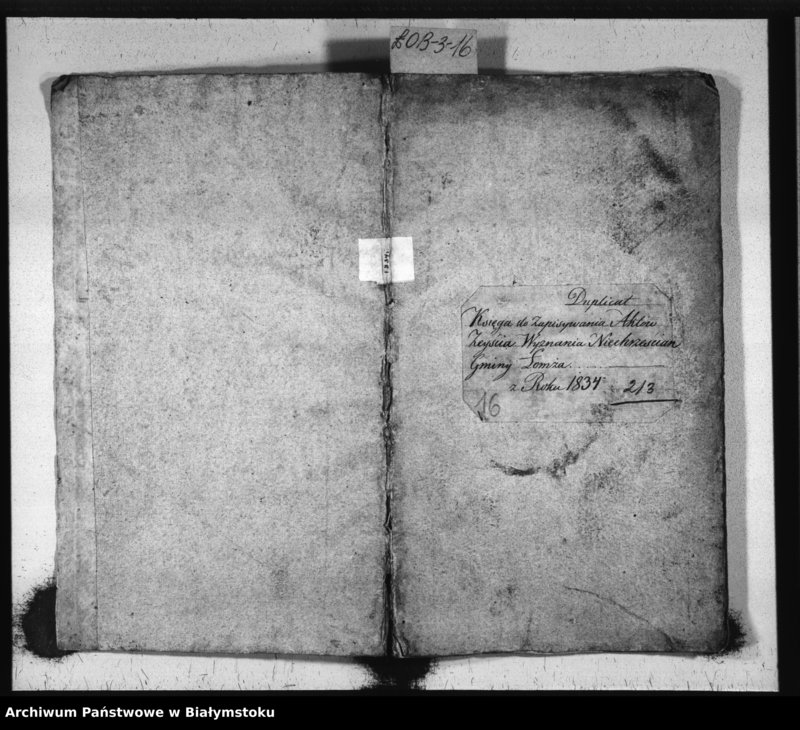 ŁOB-3-16
1834.
Duplicat
Księga do Zapisywania Aktów
Zeyścia Wyznania Niechrzescian
Gminy Łomża
z Roku 1834
213
16
Archiwum Państwowe w Białymstoku